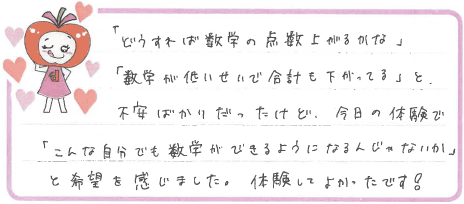 「どうすれば数学の点数上がるかな」
「数学が低いせいで合計も下がってる」と、
不安ばかりだったけど、今日の体験で
「こんな自分でも数学ができるようになるんじゃないか」
と希望を感じました。体験してよかったです!